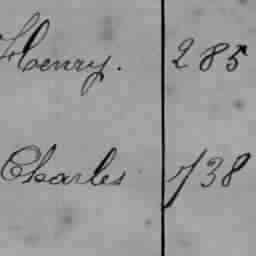 Henry. 285
Charles 738